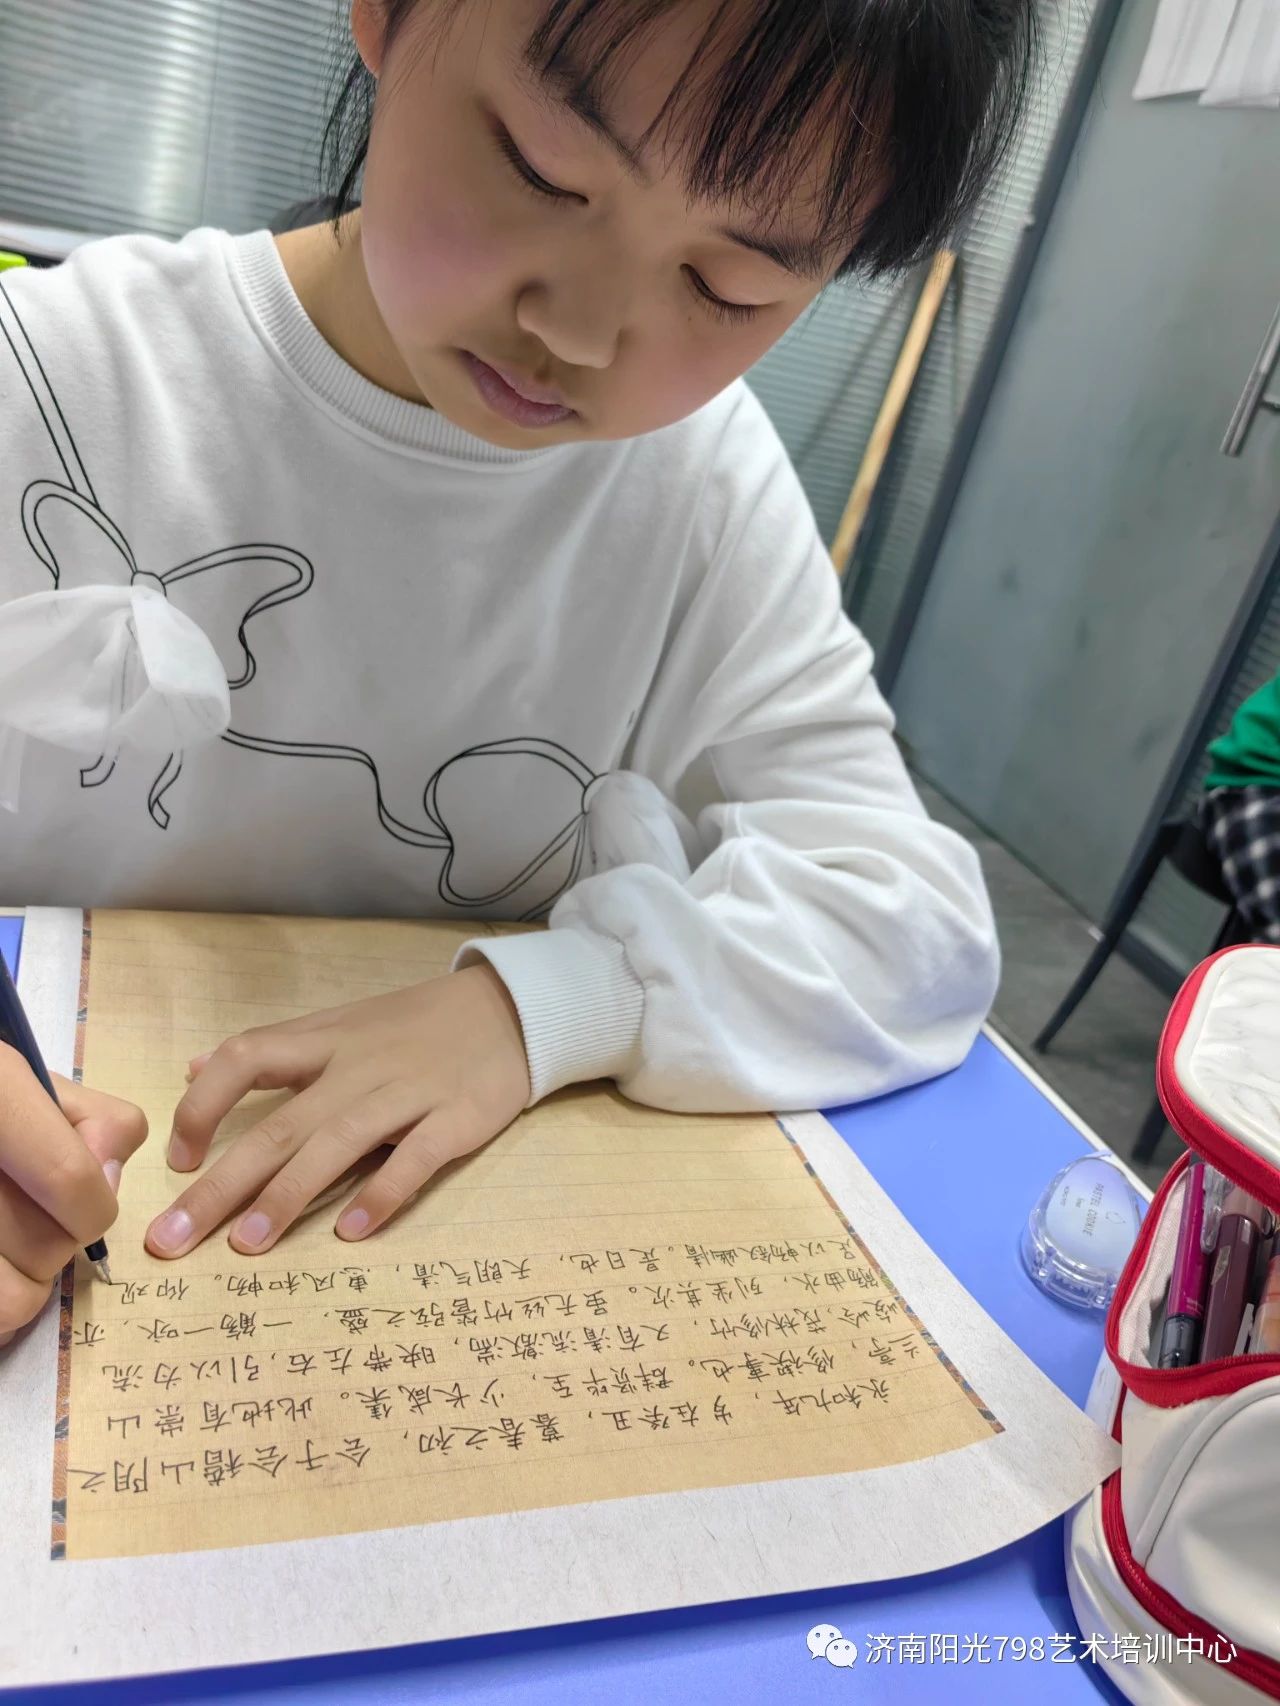 永和九年，岁在癸丑，暮春之初，会于会稽山阴之
兰亭，修禊事也。群贤毕至，少长咸集。此地有崇山
峻岭，茂林修竹，又有清流激湍，映带左右，引以为流
觞曲水，列坐其次。虽无丝竹管弦之盛，一觞一咏，亦
足以畅叙幽情。是日也，天朗气清，惠风和畅。仰观
PASTEL COOKIE
济南阳光798艺术培训中心